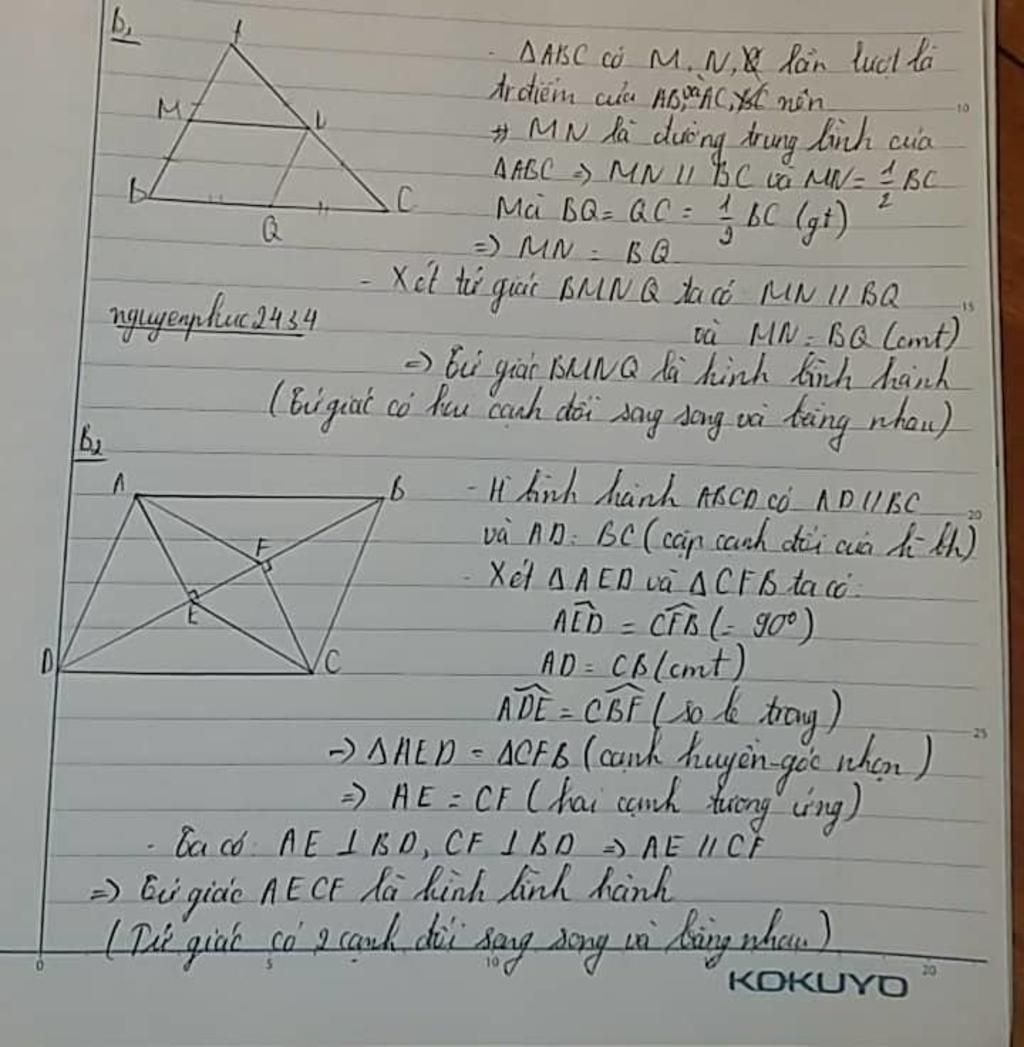 B1
A
M
B
Q
C
- ΔABC có M, N, lần lượt là
trđiểm của AB, và AC, nên
⇒ MN là đường trung bình của
ΔABC ⇒ MN // BC và MN = 1/2 BC
Mà BQ = QC = 1/2 BC (gt)
⇒ MN = BQ
- Xét tứ giác BMNQ ta có MN // BQ
và MN = BQ (cmt)
nguyenphuc2434
⇒ Tứ giác BMNQ là hình bình hành
(Tứ giác có hai cạnh đối song song và bằng nhau)
B2
A
B
F
E
D
C
- H bình hành ABCD có AD // BC
và AD = BC (cặp cạnh đối của h-bh)
- Xét ΔAED và ΔCFB ta có:
AED = CFB (= 90°)
AD = CB (cmt)
ADE = CBF (so le trong)
⇒ ΔAED = ΔCFB (cạnh huyền-góc nhọn)
⇒ AE = CF (hai cạnh tương ứng)
- Ta có: AE ⊥ BD, CF ⊥ BD ⇒ AE // CF
⇒ Tứ giác AECF là hình bình hành
(Tứ giác có 2 cạnh đối song song và bằng nhau)
10
15
20
25
0
5
10
20
KOKUYO